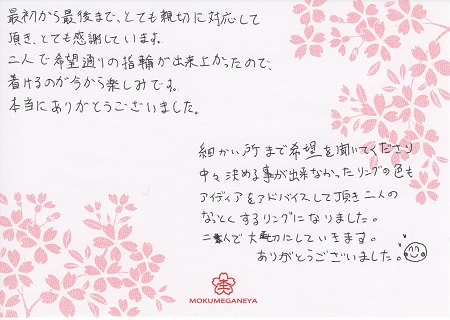 最初から最後まで、とても親切に対応して
頂き、とても感謝しています。
二人で希望通りの指輪が出来上がったので、
着けるのが今から楽しみです。
本当にありがとうございました。
細かい所まで希望を聞いてくださり
中々決める事が出来なかったリングの色も
アイディアをアドバイスして頂き二人の
なっとくするリングになりました。
二人で大切にしていきます。
ありがとうございました。
MOKUMEGANEYA